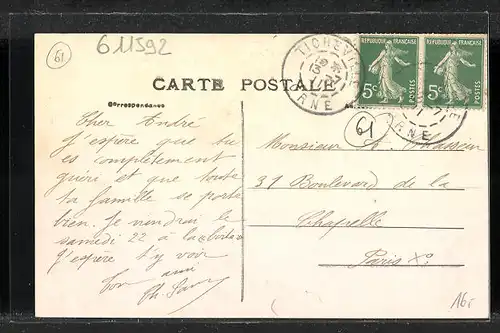 61
611592
TICHEVILLE
ORNE
REPUBLIQUE FRANÇAISE
5c
REPUBLIQUE FRANÇAISE
5c
ORNE
CARTE POSTALE
Correspondance
61
Cher André
J'espère que tu
es complètement
guéri et que toute
ta famille se porte
bien. Je viendrai le
samedi 22 à la
J'espère t'y voir
Ton ami
Ch.
Monsieur A.
31 Boulevard de la
Chapelle
Paris Xe
16